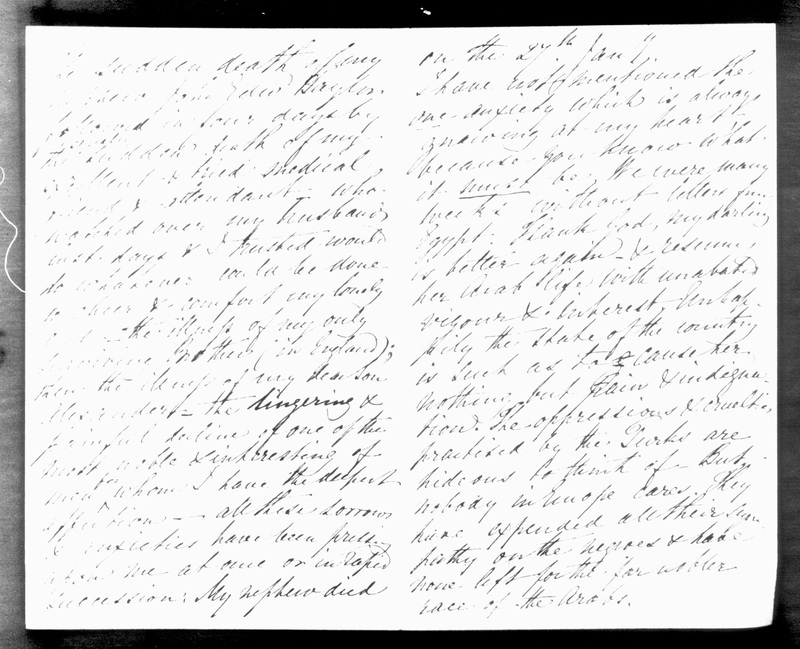 The sudden death of my
nephew John Edwd Taylor
followed in four days by
the sudden death of my
excellent & tried medical
friend & attendant who
watched over my husband's
last days & I trusted would
do whatever could be done
to cheer & comfort my lonely
the illness of my only
surviving Brother (in England);
then the illness of my dear Son
Alexander – the lingering &
painful decline of one of the
most noble & interesting of
men whom I have the deepest
affection – all these sorrows
& anxieties have been pressing
upon me at once or in rapid
succession. My nephew died
on the 27th Jany.
I have not mentioned the
one anxiety which is always
gnawing at my heart
because you know what
it must be. We were many
weeks without letters from
Egypt. Thank God, my darling
is better again & resumes
her Arab life with unabated
vigour & interest. Unhap-
pily the state of the country
is such as to cause her
nothing but pain & indigna-
tion. The oppressions & cruelties
practised by the Turks are
hideous to think of. But
nobody in Europe cares. They
have expended all their sym-
pathy on the negroes & have
none left for the far nobler
race of the Arabs.